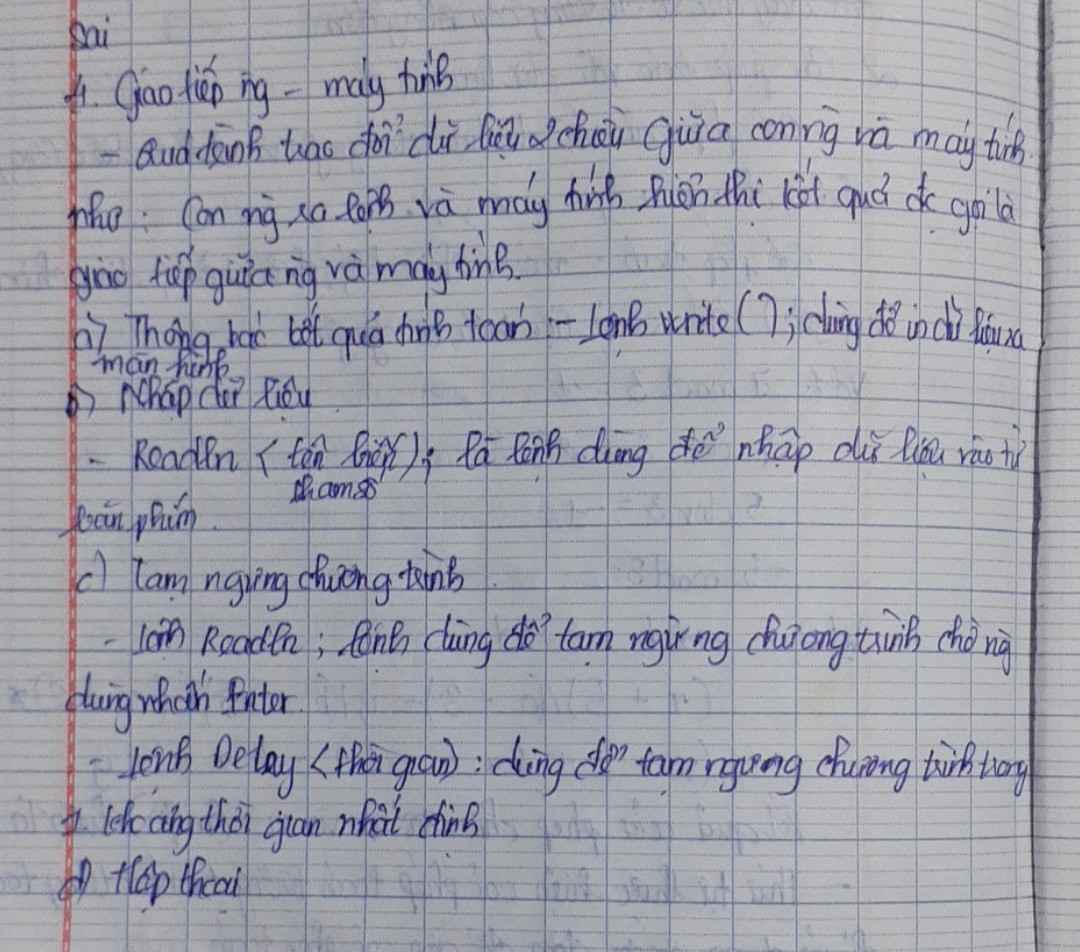 Sai
4. Giao tiếp ng - máy tính
- Quá trình trao đổi dữ liệu 2 chiều giữa con ng và máy tính
như: Con ng ra lệnh và máy tính hiển thị kết quả đc gọi là
giao tiếp giữa ng và máy tính.
a) Thông báo kết quả tính toán :- lệnh write( ); dùng để in dữ liệu ra
màn hình
b) Nhập dữ liệu
- Readln (tên biến); là lệnh dùng để nhập dữ liệu vào từ
tham số
bàn phím.
c) Tạm ngừng chương trình
- lệnh Readln; lệnh dùng để tạm ngừng chương trình chờ ng
dùng nhấn Enter.
- lệnh Delay (thời gian): dùng để tạm ngưng chương trình trong
1 khoảng thời gian nhất định
d) Hộp thoại